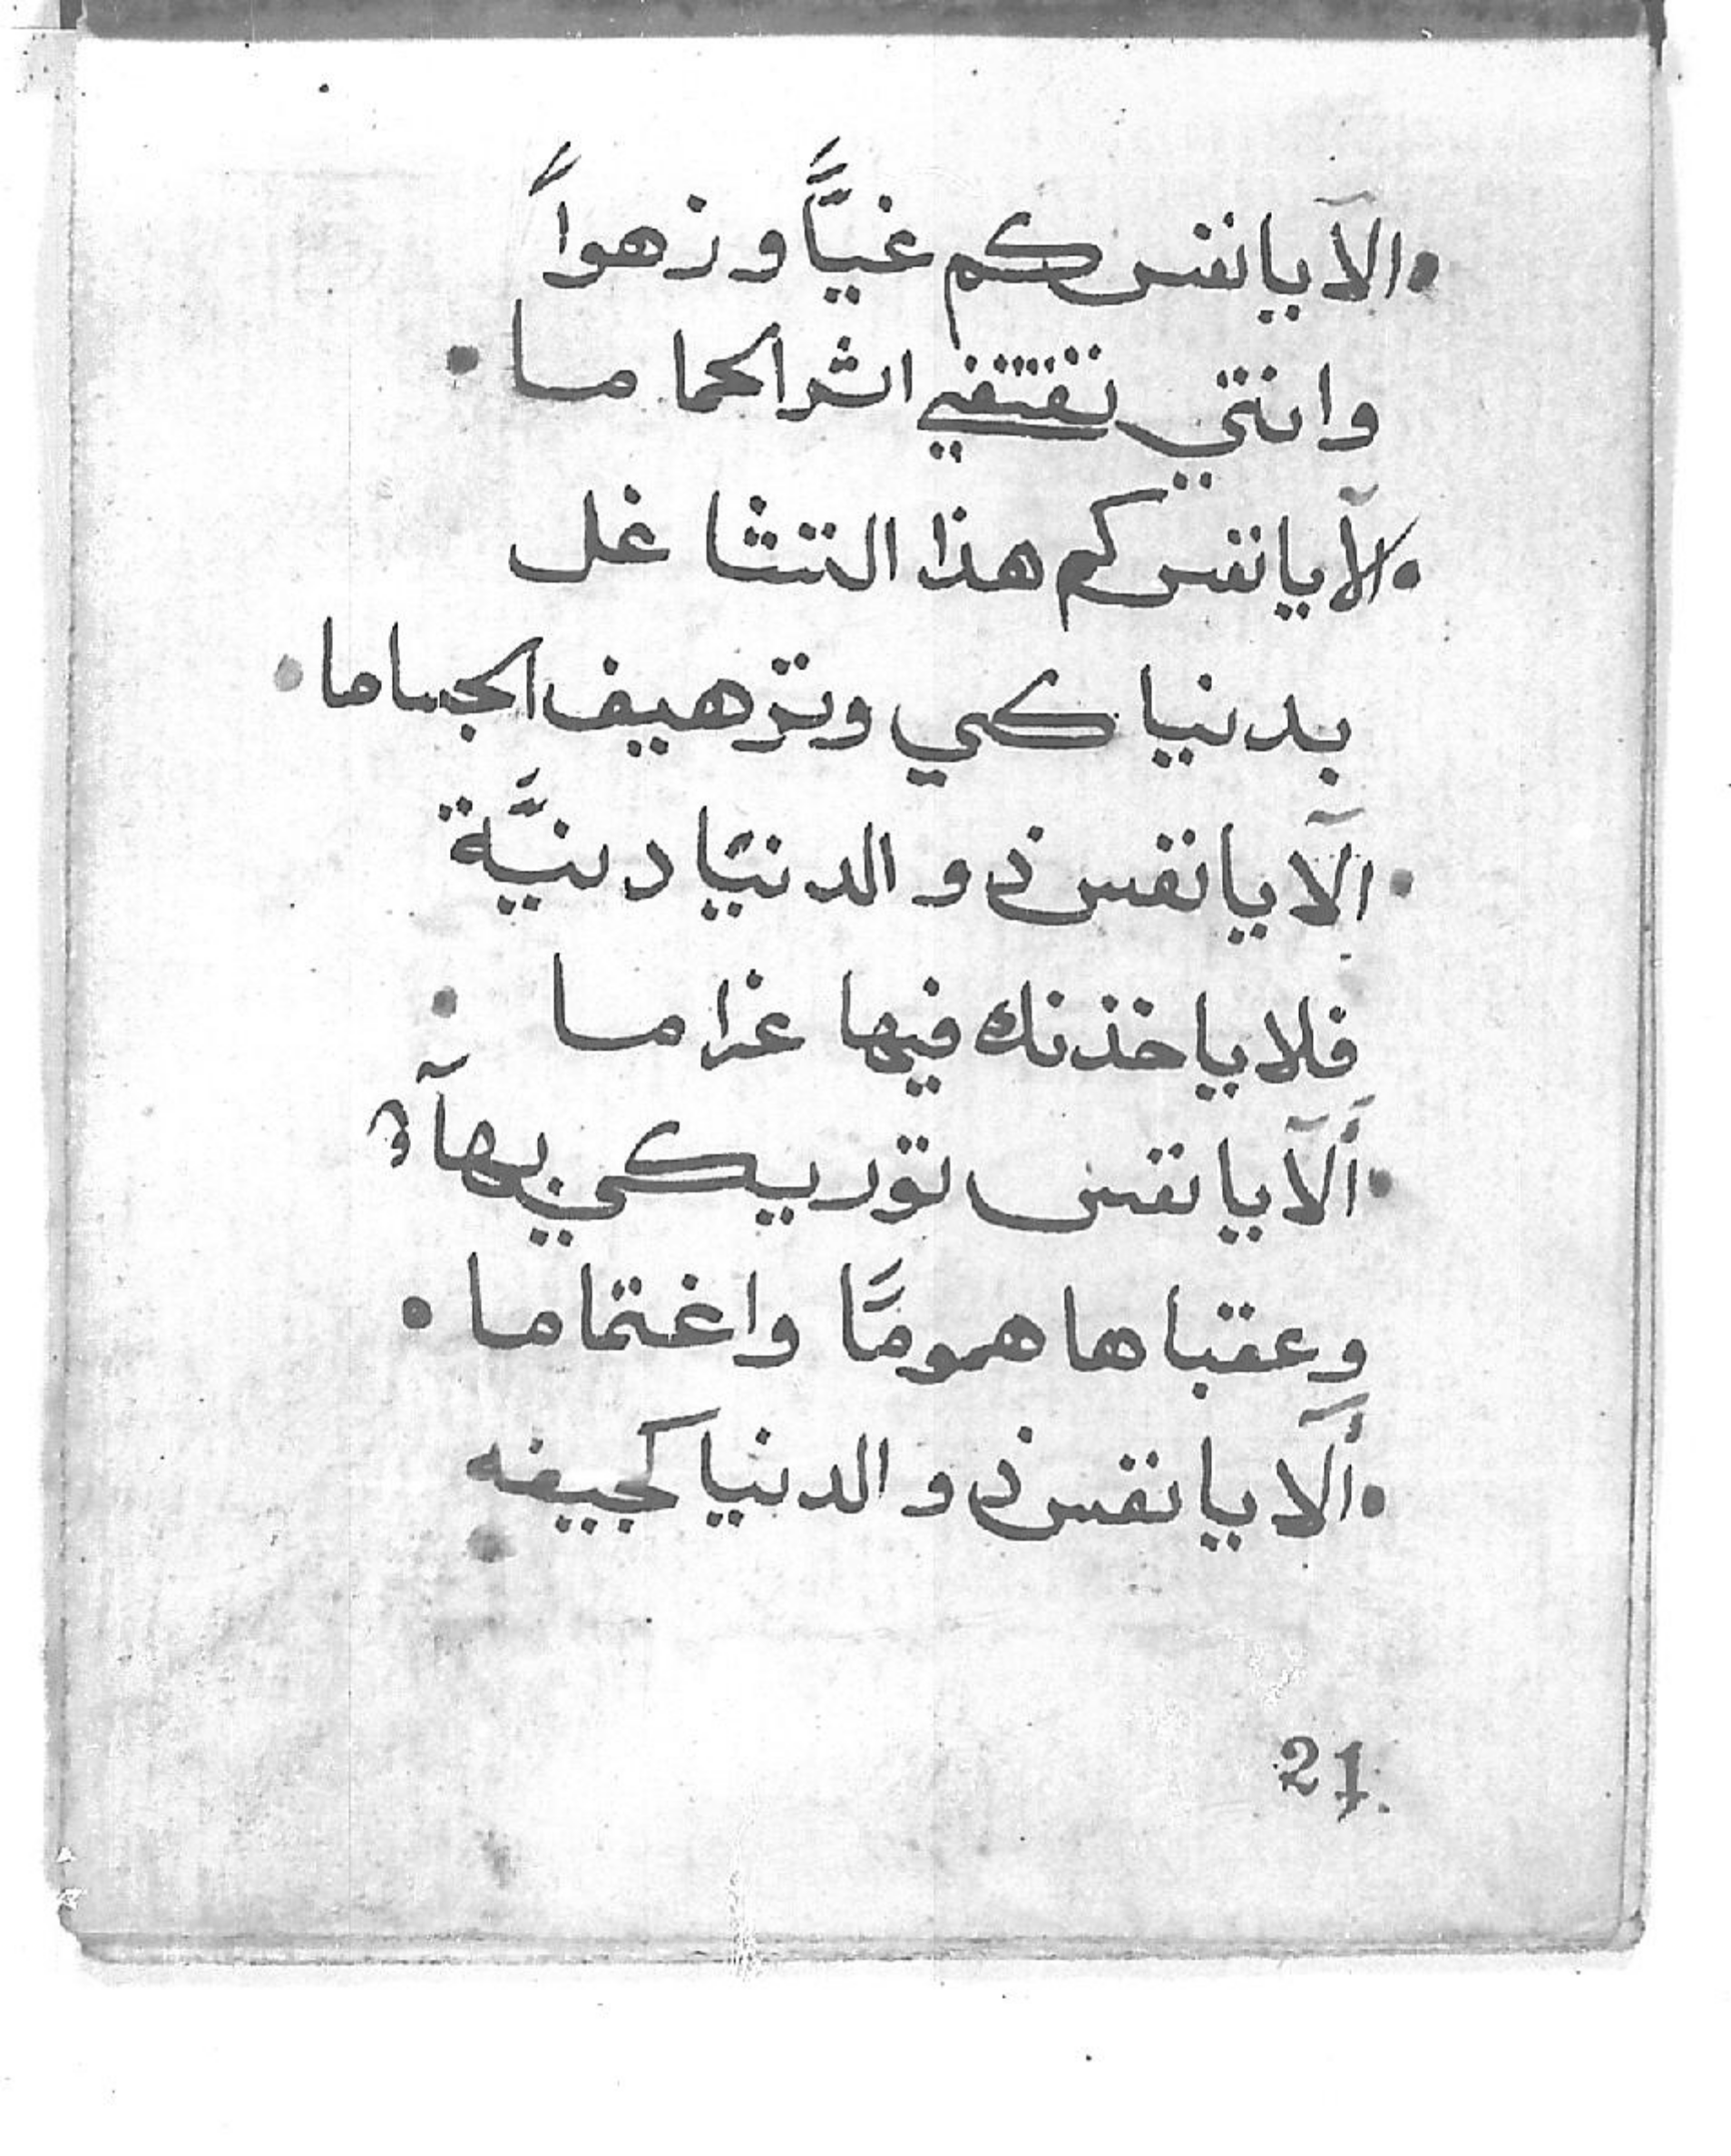 الآ يا نفس كم غيًّا و زهواً
وانتي تقتفي اثر الحماما
الآ يا نفس كم هذا التشاغل
بدنياكي وترهيف الجساما
الآ يا نفس ذو الدنيَا دنيَّة
فلا ياخذنك فيها غراما
ألآ يا نفس تؤريكي بهآ
وعقباها همومًا واغتماما
ألآ يا نفس ذو الدنيا كجيفه
21